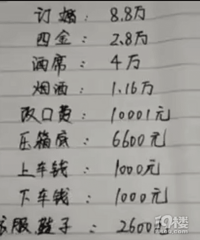 订婚：8.8万
四金：2.8万
酒席：4万
烟酒：1.16万
改口费：10001元
压箱底：6600元
上车钱：1000元
下车钱：1000元
服鞋子：2600
19楼